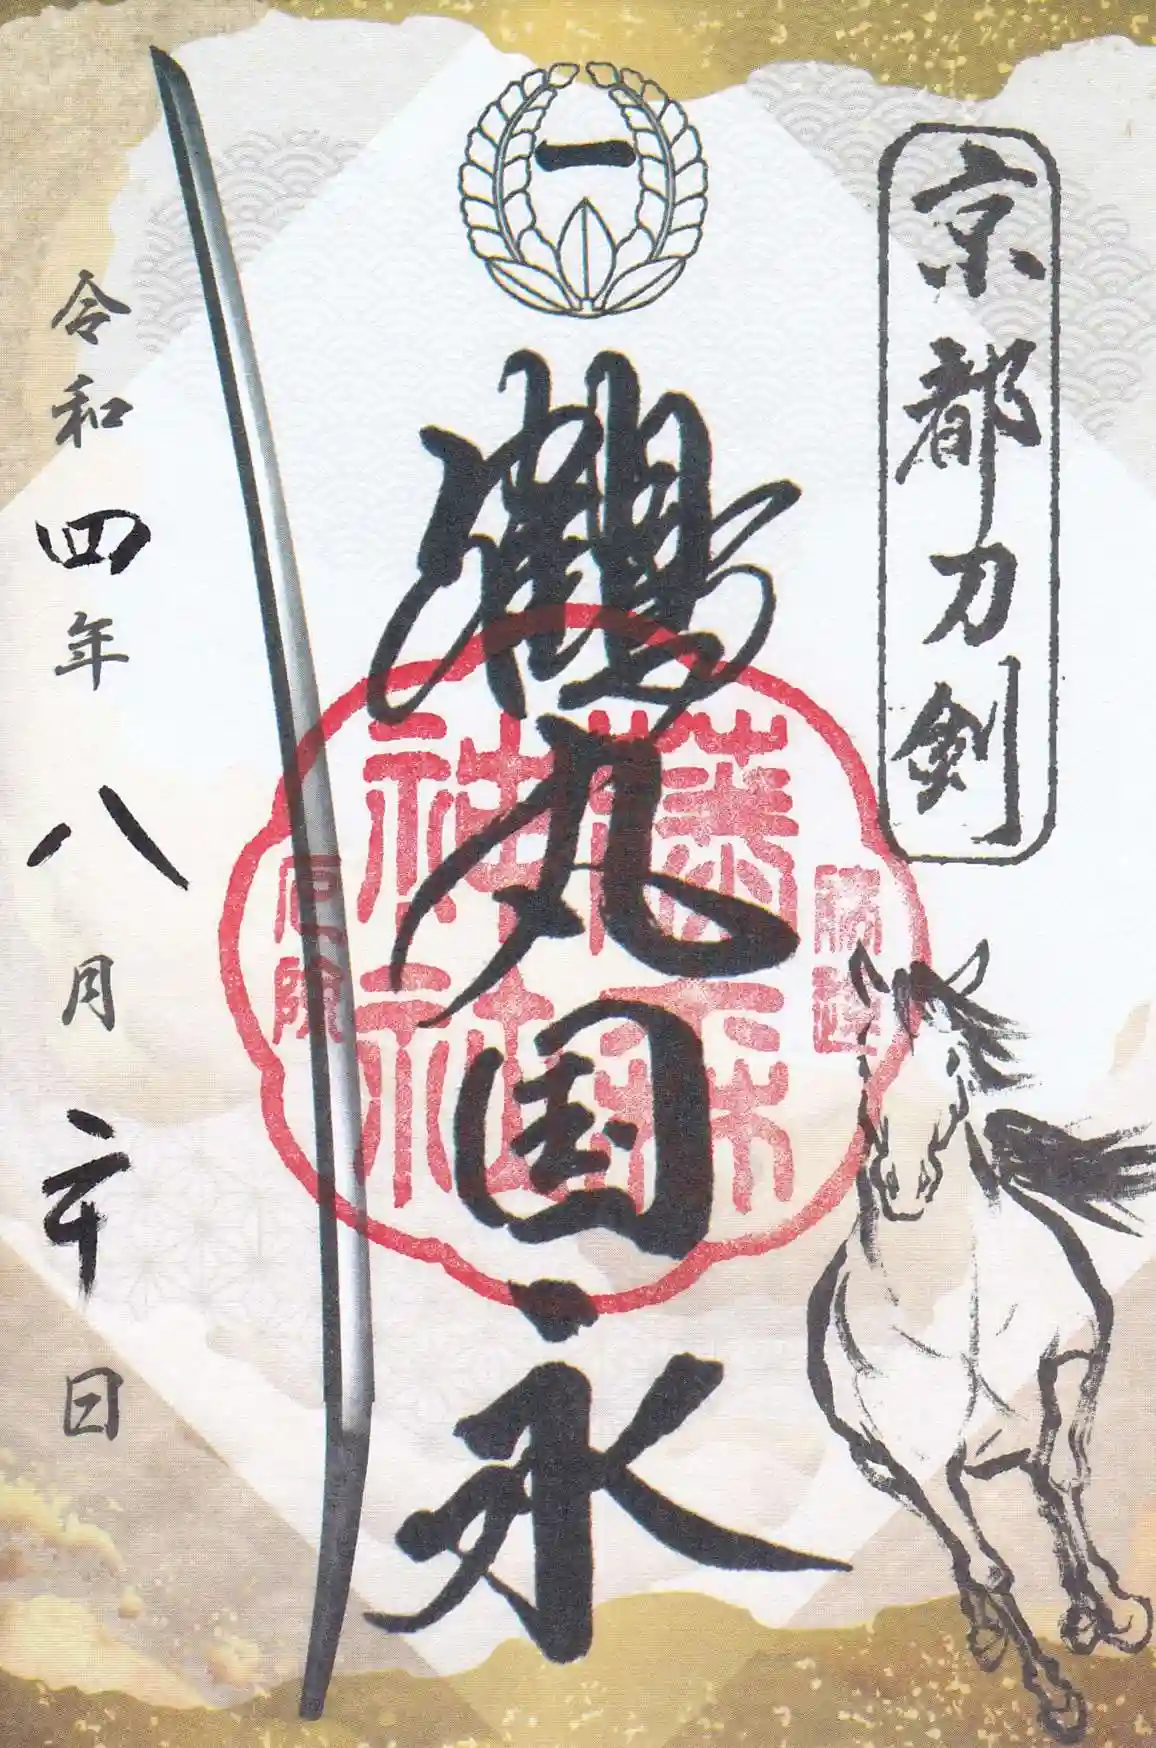 京都刀剣
一
鶴丸国永
藤森
神社
勝運
令和四年八月二十日